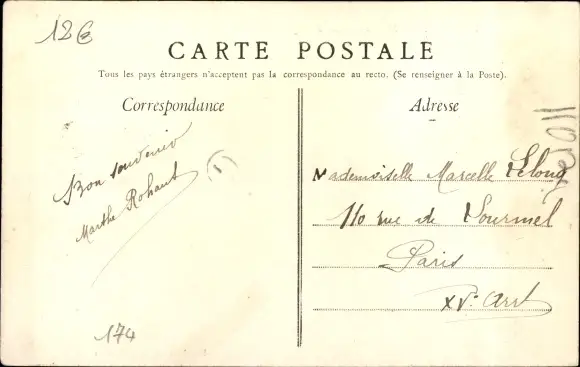 12€
CARTE POSTALE
Tous les pays étrangers n'acceptent pas la correspondance au recto. (Se renseigner à la Poste).
Correspondance
Adresse
Bon souvenir
Marthe Rohaut
1
Mademoiselle Marcelle Lelong
110 rue de Lourmel
Paris
XVe Arrt
174